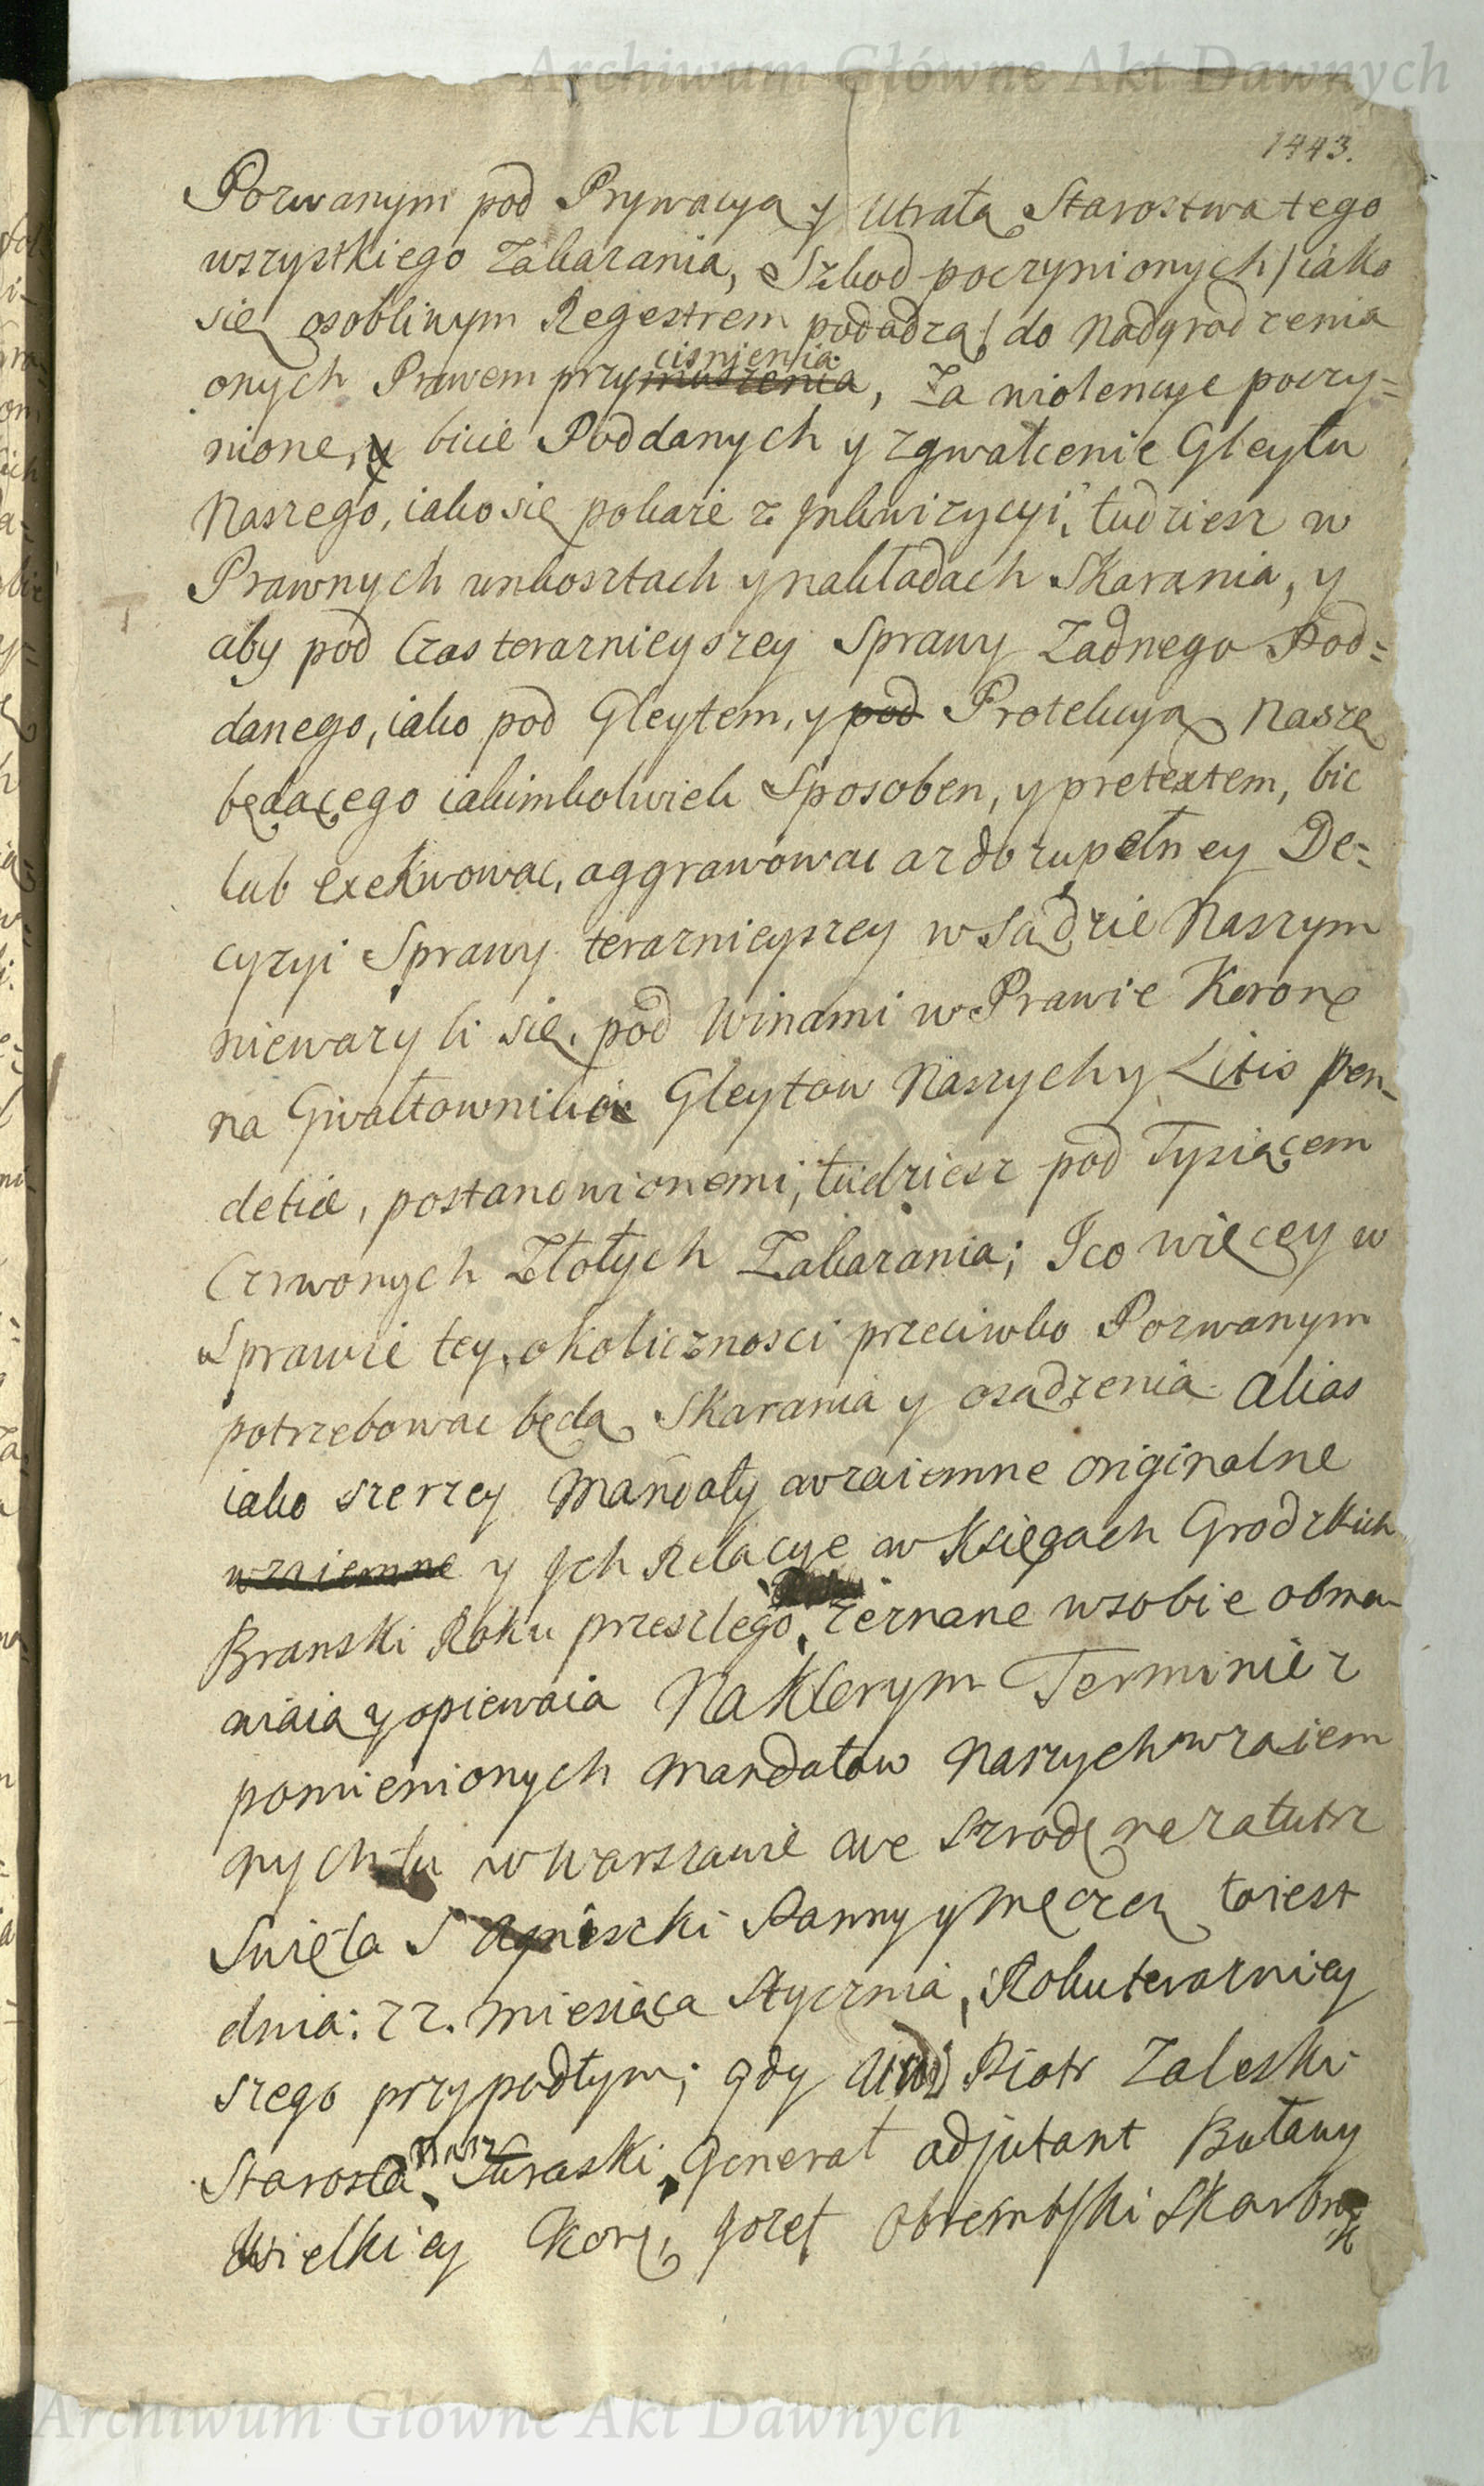 Archiwum Główne Akt Dawnych
1443.
Pozwanym pod Prywacyą y Utratą Starostwa tego
wszystkiego Zakazania, Szkod poczynionych / iako
się osobliwym Regestrem podadzą / do Nadgrodzenia
cisnienia
onych Prawem przymuszenia, Za wiolencye poczy=
nione, y bicie Poddanych y zgwałcenie Gleytu
Naszego, iako się pokaże z Inkwizycyi, tudziesz w
Prawnych unkosztach y nakładach Skarania, y
aby pod Czas teraznieyszey Sprawy Zadnego Pod=
danego, iako pod Gleytem, y pod Protekcyą Naszę
będącego iakimkolwiek Sposoben, y pretextem, bic
lub exekwowac, aggrawowac az do zupełney De=
cyzyi Sprawy teraznieyszey w Sądzie Naszym
niewazyli się, pod Winami w Prawie Koronę
na Gwałtownikow Gleytow Naszych y Litis pen=
detiæ, postanowionemi, tudziesz pod Tysiącem
Czrwonych Złotych Zakazania; Ico więcey w
Sprawie tey, okolicznosci przeciwko Pozwanym
potrzebowac będą Skarania y osądzenia alias
iako szerzey Mandaty wzaiemne originalne
wzaiemne y Ich Relacye w Księgach Grodzkich
Branski Roku przeszlego zeznane w sobie obma=
wiaią y opiewaią Na Kterym Terminie z
pomienionych Mandatow Naszych wzaiem
nych tu w Warszawie we Szrodę nezaiutrz
Swięta S Agniszki Panny y Męczen toiest
dnia: 22. Miesiąca Stycznia, Roku teraznieÿ
szego przypadłym; gdy Piotr Zaleski
Starosta Nasz Suraski, Generał adjutant Buławy
Wielkiey Kor, Jozef Obrembski Skarbnik
Archiwum Główne Akt Dawnych